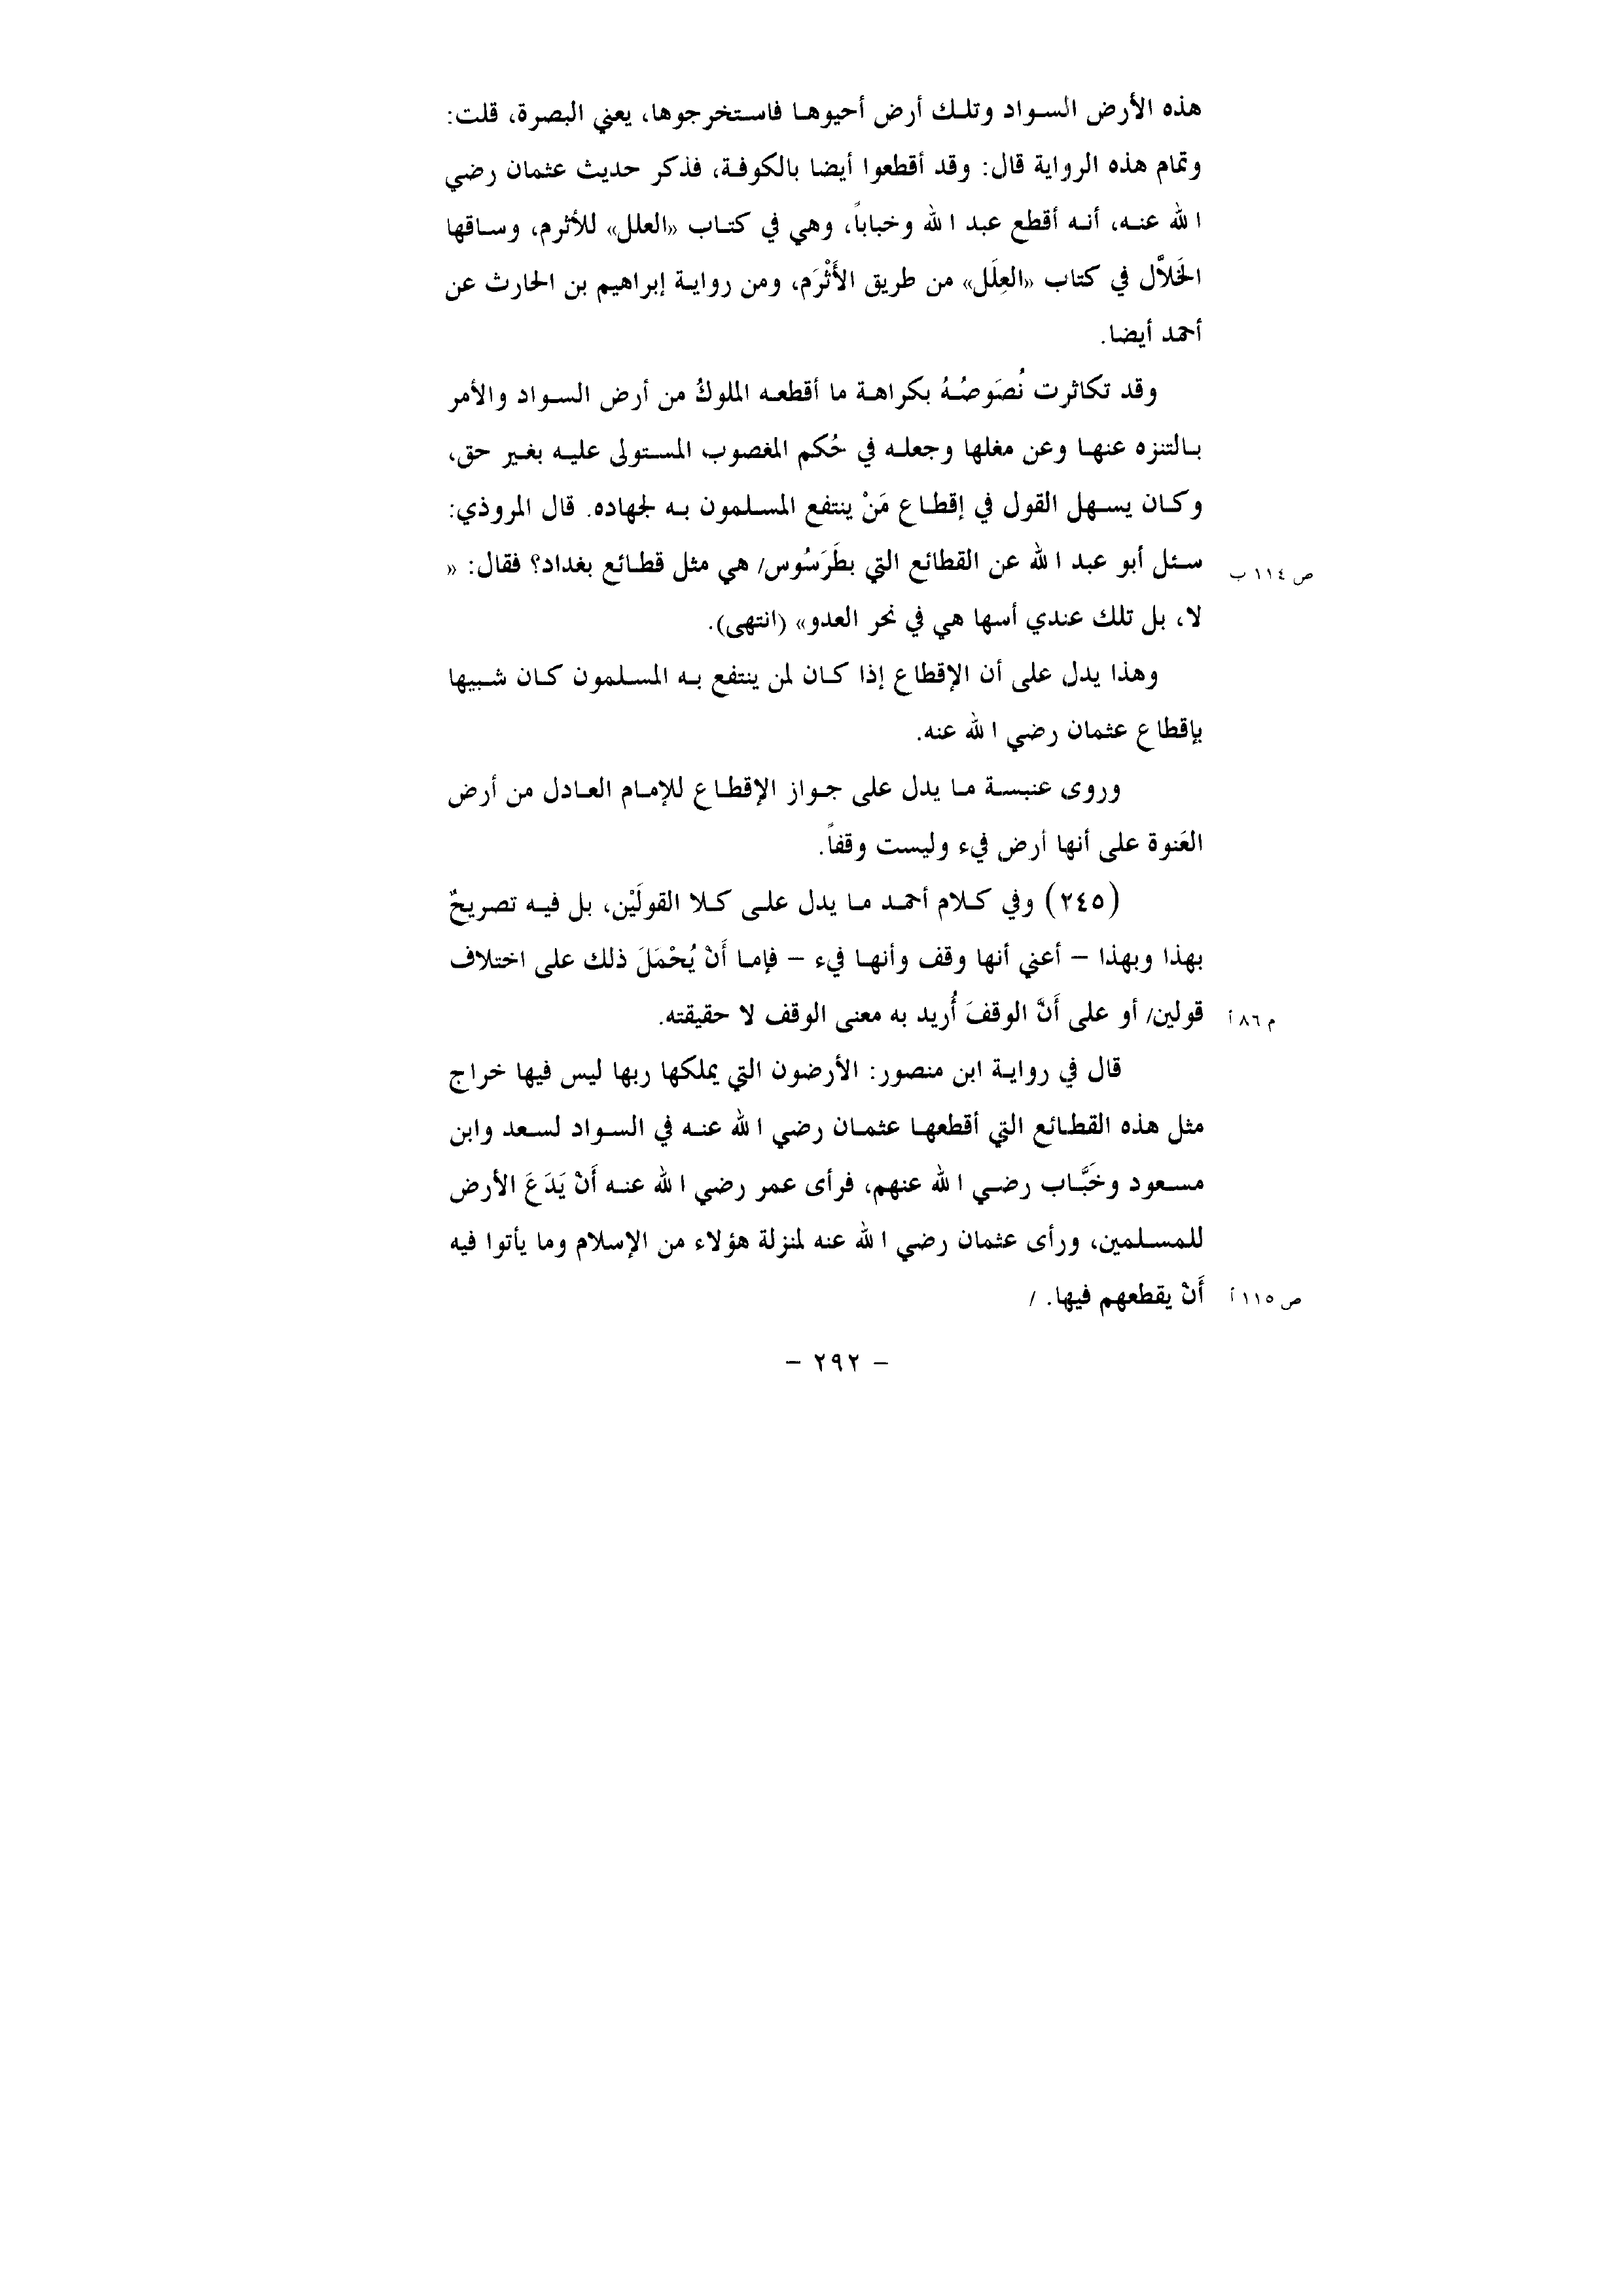 هذه الأرض السواد وتلك أرض أحيوها فاستخرجوها، يعني البصرة، قلت:
وتمام هذه الرواية قال: وقد أقطعوا أيضا بالكوفة، فذكر حديث عثمان رضي
الله عنه، أنه أقطع عبد الله وخباباً، وهي في كتاب «العلل» للأثرم، وساقها
الخَلاَّل في كتاب «العِلَل» من طريق الأَثْرَم، ومن رواية إبراهيم بن الحارث عن
أحمد أيضا.
وقد تكاثرت نُصَوصُهُ بكراهة ما أقطعه الملوكُ من أرض السواد والأمر
بالتنزه عنها وعن مغلها وجعله في حُكم المغصوب المستولى عليه بغير حق،
وكان يسهل القول في إقطاع مَنْ ينتفع المسلمون به لجهاده. قال المروذي:
سئل أبو عبد الله عن القطائع التي بطَرَسُوس/ هي مثل قطائع بغداد؟ فقال: «
ص ١١٤ ب
لا، بل تلك عندي أسها هي في نحر العدو» (انتهى).
وهذا يدل على أن الإقطاع إذا كان لمن ينتفع به المسلمون كان شبيها
بإقطاع عثمان رضي الله عنه.
وروى عنبسة ما يدل على جواز الإقطاع للإمام العادل من أرض
العَنوة على أنها أرض فيء وليست وقفاً.
(٢٤٥) وفي كلام أحمد ما يدل على كلا القولَيْن، بل فيه تصريحٌ
بهذا وبهذا – أعني أنها وقف وأنها فيء – فإما أَنْ يُحْمَلَ ذلك على اختلاف
قولين/ أو على أَنَّ الوقفَ أُريد به معنى الوقف لا حقيقته.
م ٨٦ أ
قال في رواية ابن منصور: الأرضون التي يملكها ربها ليس فيها خراج
مثل هذه القطائع التي أقطعها عثمان رضي الله عنه في السواد لسعد وابن
مسعود وخَبَّاب رضي الله عنهم، فرأى عمر رضي الله عنه أَنْ يَدَعَ الأرض
للمسلمين، ورأى عثمان رضي الله عنه لمنزلة هؤلاء من الإسلام وما يأتوا فيه
أَنْ يقطعهم فيها. /
ص ١١٥ أ
– ٢٩٢ –